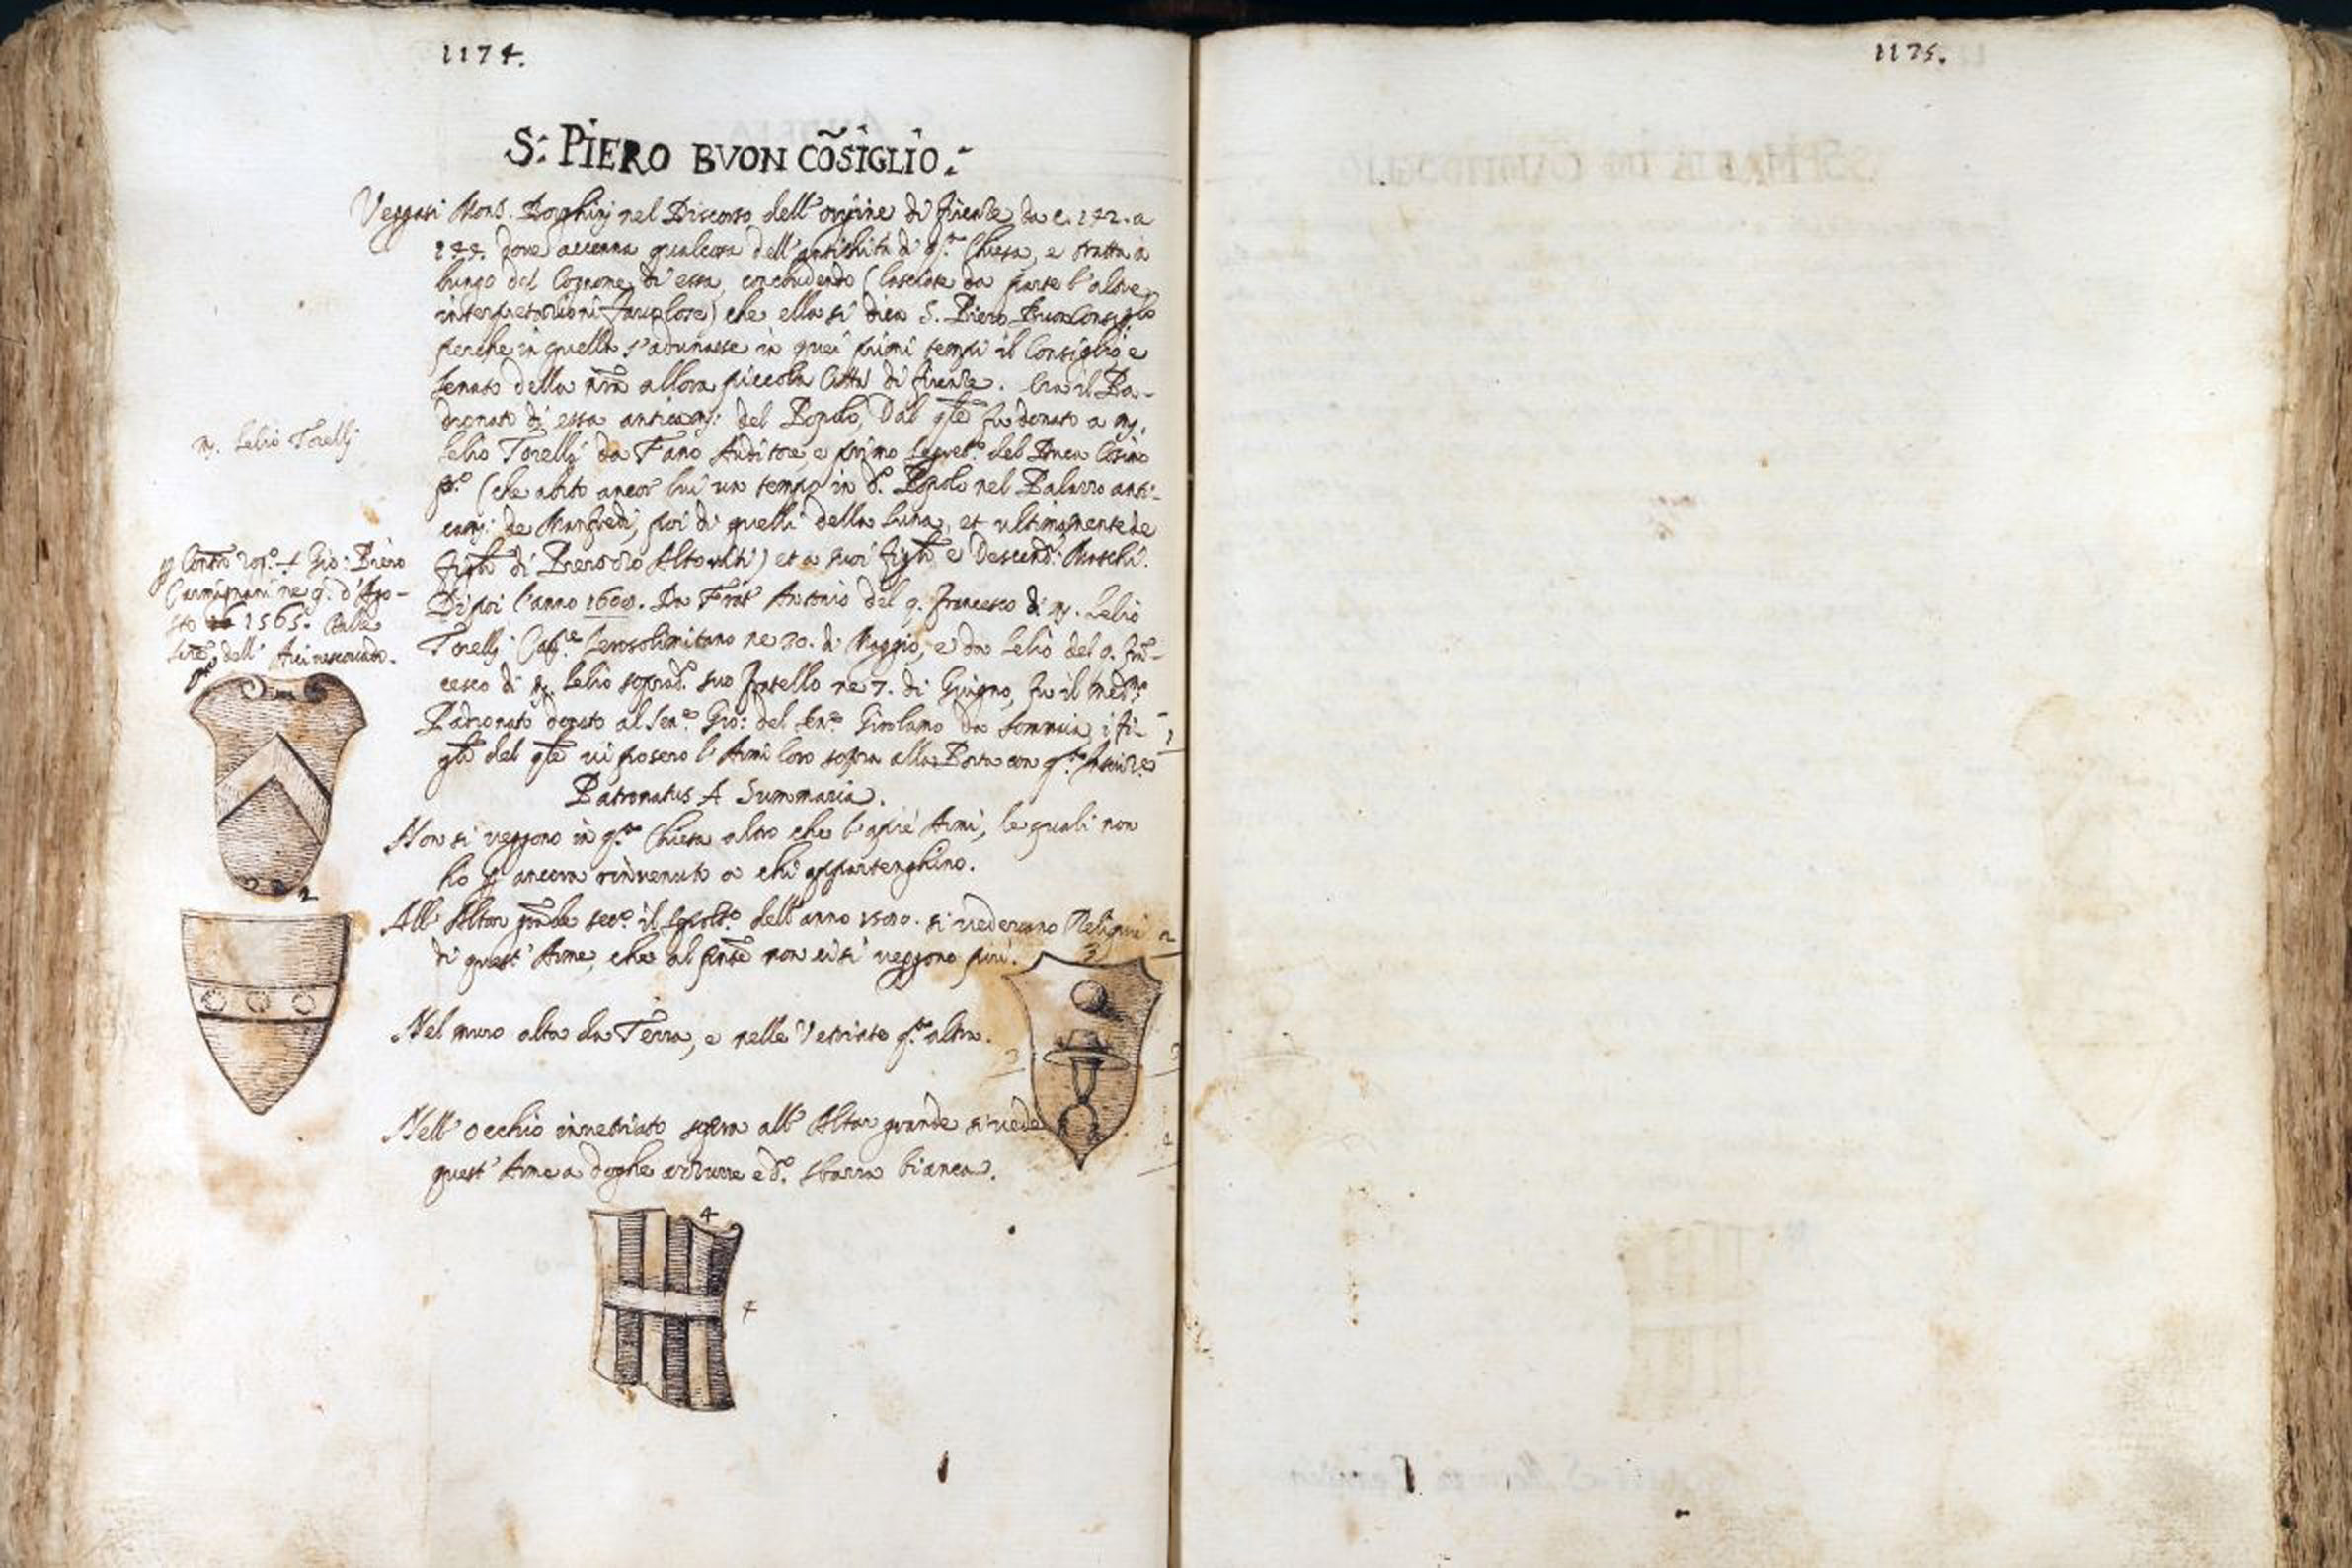 1174.
1175.
S: PIERO BVON CÕSIGLIO.
Veggasi Mons. Borghinj nel Discorso dell' origine di firenze da c. 142. a
144. dove accenna qualcosa dell' antichità di q.ta Chiesa, e tratta a
lungo del Cognome di essa, concludendo (lasciate da parte l'altre
interpretationi favolose) che ella si dica S. Piero Buonconsiglio
perche in quella s'adunasse in quei primi tempi il Consiglio e
Senato della nrã allora piccola Città di firenze. Era il Pa-
dronato di essa anticamᵉ: del Popolo, Dal qle fu donato a m.
Lelio Torellj da Fano Auditore, e primo Segret.º del Duca Cosimo
p.º (che abitò ancor lui un tempo in d.º Popolo nel Palazzo anti-
camᵉ: de Manfredi, poi di quelli della Luna, et ultimamente de
figli di Altoviti) et a suoi figli e Descend: Maschi.
Dipoi l'anno 1608. Da Frat' Antonio del q. francesco di m. Lelio
Torellj Cav.e Ierosolimitano ne 30. di Maggio, e da Lelio del q. frã-
cesco di m. Lelio soprad.º suo fratello ne 7. di Giugno, fu il med.mo
Padronato donato al Sen.e Gio: del Sen.e Girolamo da Sommaia, i fi-
gli del qle vi posero l'Armi loro sopra alla Porta con q.ta Inscriz.e
Patronatus A Summaria.
Non si veggono in q.ta Chiesa altro che l'apiè Armi, le quali non
ho p ancora rinvenuto a chi appartenghino.
All' Altar grãde sec.º il dell' anno si vedevano Reliquie
di quest' Arme, che al pñte non vi si veggono più.
Nel muro alto da Terra, e nelle Vetriate q.ta altra.
Nell' occhio invetriato sopra all' Altar grande si vede
quest' Arme a doghe azzurre e d.º sbarra bianca.
m. Lelio Torellj
p Contr.º rog.º + Gio: Piero
Carmignani ne 9. d'Ago-
sto 1563. nelle
dell' Arcivescovado.
2
3
4
4